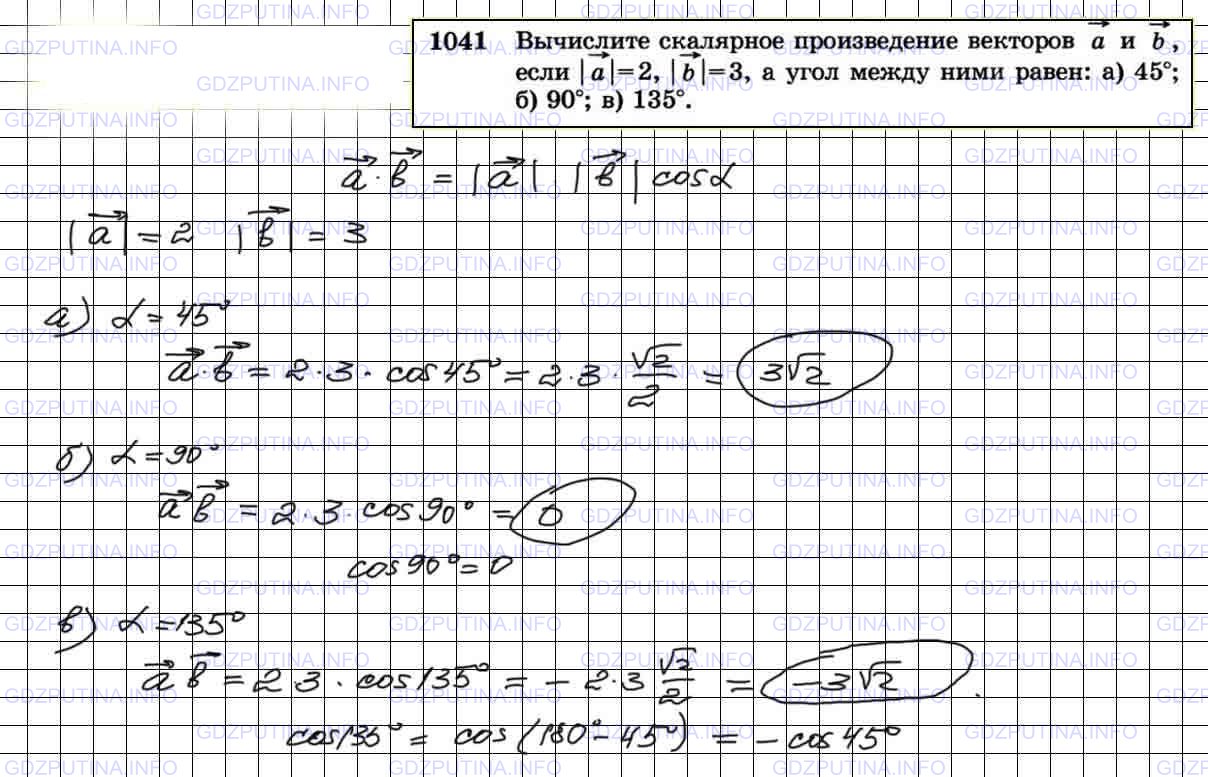 1041 Вычислите скалярное произведение векторов a⃗ и b⃗,
если |a⃗|=2, |b⃗|=3, а угол между ними равен: а) 45°;
б) 90°; в) 135°.
a⃗·b⃗ = |a⃗| · |b⃗| cosα
|a⃗| = 2 |b⃗| = 3
а) α = 45°
a⃗·b⃗ = 2·3· cos45° = 2·3·√2/2 = 3√2
б) α = 90°
a⃗ b⃗ = 2·3·cos90° = 0
cos90° = 0
в) α = 135°
a⃗ b⃗ = 2·3·cos135° = – 2·3 √2/2 = –3√2.
cos135° = cos(180°–45°) = – cos45°
GDZPUTINA.INFO